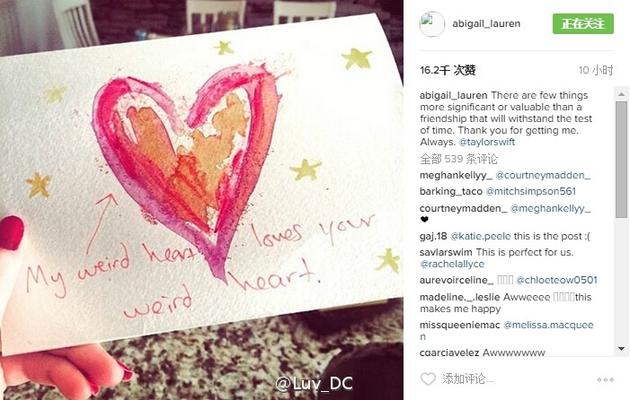 My weird heart loves your
weird heart.
@Luv_DC
abigail_lauren
正在关注
16.2千 次赞
10 小时
abigail_lauren There are few things
more significant or valuable than a
friendship that will withstand the test
of time. Thank you for getting me.
Always. @taylorswift
全部 539 条评论
meghankellyy_ @courtneymadden_
barking_taco @mitchsimpson561
courtneymadden_ @meghankellyy_
❤
gaj.18 @katie.peele this is the post :(
savlarswim This is perfect for us.
@rachelallyce
aurevoirceline_ @chloeteow0501
madeline._.leslie Awweeee this
makes me happy
missqueeniemac @melissa.macquee
n
cgarciavelez Awwwwwww
添加评论...